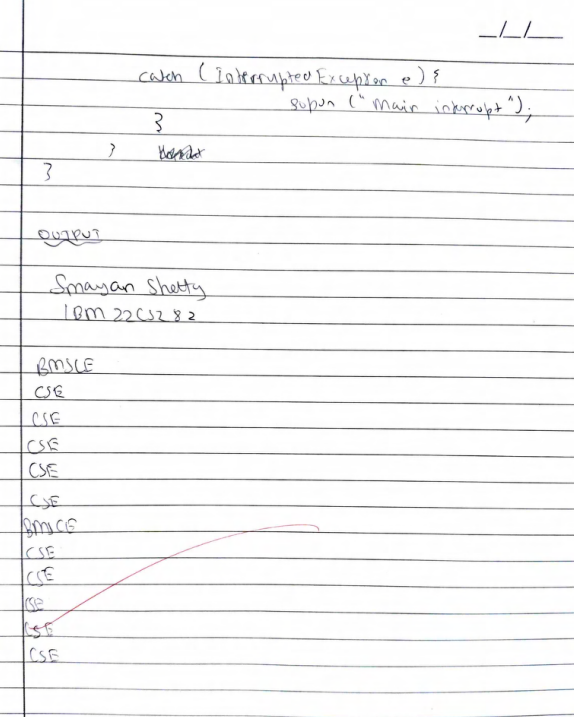 _/_/_
catch (Interrupted Exception e) {
sopln ("Main interrupt");
}
}
}
OUTPUT
Smayan Shetty
1BM22CS282
BMSCE
CSE
CSE
CSE
CSE
CSE
BMSCE
CSE
CSE
CSE
CSE
CSE